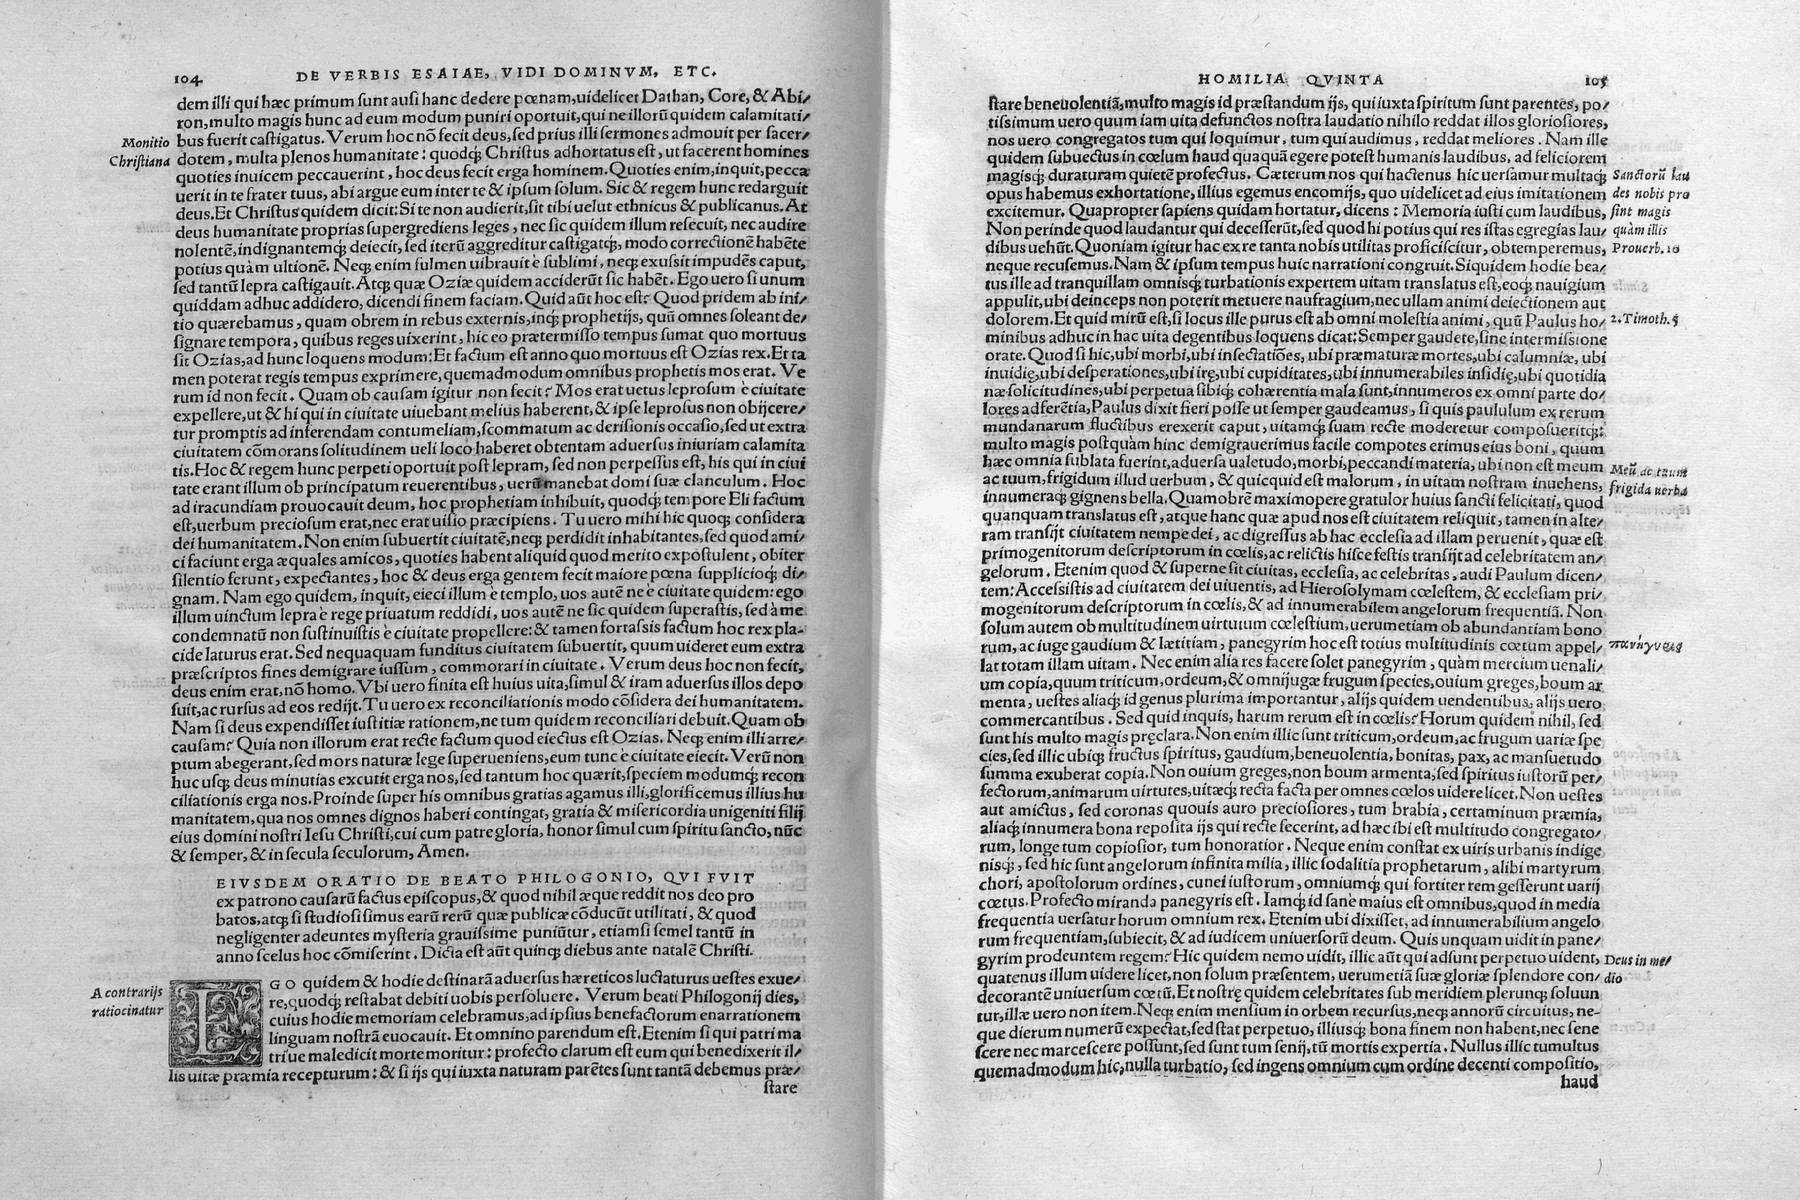 104
DE VERBIS ESAIAE, VIDI DOMINVM, ETC.
dem illi qui hæc primum sunt ausi hanc dedere pœnam, uidelicet Dathan, Core, & Abi/
ron, multo magis hunc ad eum modum puniri oportuit, qui ne illorũ quidem calamitati/
Monitio
Christiana
bus fuerit castigatus. Verum hoc nõ fecit deus, sed prius illi sermones admouit per sacer/
dotem, multa plenos humanitate: quodq; Christus adhortatus est, ut facerent homines
quoties inuicem peccauerint, hoc deus fecit erga hominem. Quoties enim, inquit, pecca
uerit in te frater tuus, abi argue eum inter te & ipsum solum. Sic & regem hunc redarguit
deus. Et Christus quidem dicit: Si te non audierit, sit tibi uelut ethnicus & publicanus. At
deus humanitate proprias supergrediens leges, nec sic quidem illum resecuit, nec audire
nolentẽ, indignantemq; deiecit, sed iterũ aggreditur castigatq;, modo correctionẽ habẽte
potius quàm ultionẽ. Neq; enim fulmen uibrauit è sublimi, neq; exussit impudẽs caput,
sed tantũ lepra castigauit. Atq; quæ Oziæ quidem acciderũt sic habẽt. Ego uero si unum
quiddam adhuc addidero, dicendi finem faciam. Quid aũt hoc est? Quod pridem ab ini/
tio quærebamus, quam obrem in rebus externis, inq; prophetijs, quũ omnes soleant de/
signare tempora, quibus reges uixerint, hic eo prætermisso tempus sumat quo mortuus
sit Ozias, ad hunc loquens modum: Et factum est anno quo mortuus est Ozias rex. Et ta
men poterat regis tempus exprimere, quemadmodum omnibus prophetis mos erat. Ve
rum id non fecit. Quam ob causam igitur non fecit? Mos erat uetus leprosum è ciuitate
expellere, ut & hi qui in ciuitate uiuebant melius haberent, & ipse leprosus non obijcere/
tur promptis ad inferendam contumeliam, scommatum ac derisionis occasio, sed ut extra
ciuitatem cõmorans solitudinem ueli loco haberet obtentam aduersus iniuriam calamita
tis. Hoc & regem hunc perpeti oportuit post lepram, sed non perpessus est, his qui in ciui
tate erant illum ob principatum reuerentibus, uerũ manebat domi suæ clanculum. Hoc
ad iracundiam prouocauit deum, hoc prophetiam inhibuit, quodq; tempore Eli factum
est, uerbum preciosum erat, nec erat uisio præcipiens. Tu uero mihi hic quoq; considera
dei humanitatem. Non enim subuertit ciuitatẽ, neq; perdidit inhabitantes, sed quod ami/
ci faciunt erga æquales amicos, quoties habent aliquid quod merito expostulent, obiter
silentio ferunt, expectantes, hoc & deus erga gentem fecit maiore pœna supplicioq; di/
gnam. Nam ego quidem, inquit, eieci illum è templo, uos autẽ ne è ciuitate quidem: ego
illum uinctum lepra è rege priuatum reddidi, uos autẽ ne sic quidem superastis, sed à me
condemnatũ non sustinuistis è ciuitate propellere: & tamen fortassis factum hoc rex pla-
cide laturus erat. Sed nequaquam funditus ciuitatem subuertit, quum uideret eum extra
præscriptos fines demigrare iussum, commorari in ciuitate. Verum deus hoc non fecit,
deus enim erat, nõ homo. Vbi uero finita est huius uita, simul & iram aduersus illos depo
suit, ac rursus ad eos redijt. Tu uero ex reconciliationis modo cõsidera dei humanitatem.
Nam si deus expendisset iustitiæ rationem, ne tum quidem reconciliari debuit. Quam ob
causam? Quia non illorum erat recte factum quod eiectus est Ozias. Neq; enim illi arre/
ptum abegerant, sed mors naturæ lege superueniens, eum tunc è ciuitate eiecit. Verũ non
huc usq; deus minutias excutit erga nos, sed tantum hoc quærit, speciem modumq; recon
ciliationis erga nos. Proinde super his omnibus gratias agamus illi, glorificemus illius hu
manitatem, qua nos omnes dignos haberi contingat, gratia & misericordia unigeniti filij
eius domini nostri Iesu Christi, cui cum patre gloria, honor simul cum spiritu sancto, nũc
& semper, & in secula seculorum, Amen.
EIVSDEM ORATIO DE BEATO PHILOGONIO, QVI FVIT
ex patrono causarũ factus episcopus, & quod nihil æque reddit nos deo pro
batos, atq; si studiosissimus earũ rerũ quæ publicæ cõducũt utilitati, & quod
negligenter adeuntes mysteria grauissime puniũtur, etiamsi semel tantũ in
anno scelus hoc cõmiserint. Dicta est aũt quinq; diebus ante natalẽ Christi.
A contrarijs
ratiocinatur
EGO quidem & hodie destinarã aduersus hæreticos luctaturus uestes exue/
re, quodq; restabat debiti uobis persoluere. Verum beati Philogonij dies,
cuius hodie memoriam celebramus, ad ipsius benefactorum enarrationem
linguam nostrã euocauit. Et omnino parendum est. Etenim si qui patri ma
triue maledicit morte moritur: profecto clarum est eum qui benedixerit il/
lis uitæ præmia recepturum: & si ijs qui iuxta naturam parẽtes sunt tantã debemus præ/
stare
HOMILIA QVINTA
105
stare beneuolentiã, multo magis id præstandum ijs, qui iuxta spiritum sunt parentes, po/
tissimum uero quum iam uita defunctos nostra laudatio nihilo reddat illos gloriosiores,
nos uero congregatos tum qui loquimur, tum qui audimus, reddat meliores. Nam ille
quidem subuectus in cœlum haud quaquã egere potest humanis laudibus, ad feliciorem
magisq; duraturam quietẽ profectus. Cæterum nos qui hactenus hic uersamur multaq;
opus habemus exhortatione, illius egemus encomijs, quo uidelicet ad eius imitationem
excitemur. Quapropter sapiens quidam hortatur, dicens: Memoria iusti cum laudibus,
Non perinde quod laudantur qui decesserũt, sed quod hi potius qui res istas egregias lau/
dibus uehũt. Quoniam igitur hac ex re tanta nobis utilitas proficiscitur, obtemperemus,
Sanctorũ lau
des nobis pro
sint magis
quàm illis
Prouerb. 10
neque recusemus. Nam & ipsum tempus huic narrationi congruit. Siquidem hodie bea/
tus ille ad tranquillam omnisq; turbationis expertem uitam translatus est, eoq; nauigium
appulit, ubi deinceps non poterit metuere naufragium, nec ullam animi deiectionem aut
dolorem. Et quid mirũ est, si locus ille purus est ab omni molestia animi, quũ Paulus ho/
2. Timoth. 5
minibus adhuc in hac uita degentibus loquens dicat: Semper gaudete, sine intermissione
orate. Quod si hic, ubi morbi, ubi insectatiões, ubi præmaturæ mortes, ubi calumniæ, ubi
inuidię, ubi desperationes, ubi irę, ubi cupiditates, ubi innumerabiles insidię, ubi quotidia
næ solicitudines, ubi perpetua sibiq; cohærentia mala sunt, innumeros ex omni parte do/
lores adferẽtia, Paulus dixit fieri posse ut semper gaudeamus, si quis paululum ex rerum
mundanarum fluctibus erexerit caput, uitamq; suam recte moderetur composueritq;:
multo magis postquàm hinc demigrauerimus facile compotes erimus eius boni, quum
hæc omnia sublata fuerint, aduersa ualetudo, morbi, peccandi materia, ubi non est meum
ac tuum, frigidum illud uerbum, & quicquid est malorum, in uitam nostram inuehens,
Meũ ac tuum
frigida uerba
innumeraq; gignens bella. Quamobrẽ maximopere gratulor huius sancti felicitati, quod
quanquam translatus est, atque hanc quæ apud nos est ciuitatem reliquit, tamen in alte/
ram transijt ciuitatem nempe dei, ac digressus ab hac ecclesia ad illam peruenit, quæ est
primogenitorum descriptorum in cœlis, ac relictis hisce festis transijt ad celebritatem an/
gelorum. Etenim quod & superne sit ciuitas, ecclesia, ac celebritas, audi Paulum dicen/
tem: Accessistis ad ciuitatem dei uiuentis, ad Hierosolymam cœlestem, & ecclesiam pri/
mogenitorum descriptorum in cœlis, & ad innumerabilem angelorum frequentiã. Non
solum autem ob multitudinem uirtutum cœlestium, uerumetiam ob abundantiam bono
rum, ac iuge gaudium & lætitiam, panegyrim hoc est totius multitudinis cœtum appel/
πανήγυρις
lat totam illam uitam. Nec enim alia res facere solet panegyrim, quàm mercium uenali/
um copia, quum triticum, ordeum, & omnijugæ frugum species, ouium greges, boum ar
menta, uestes aliaq; id genus plurima importantur, alijs quidem uendentibus, alijs uero
commercantibus. Sed quid inquis, harum rerum est in cœlis? Horum quidem nihil, sed
sunt his multo magis pręclara. Non enim illic sunt triticum, ordeum, ac frugum uariæ spe
cies, sed illic ubiq; fructus spiritus, gaudium, beneuolentia, bonitas, pax, ac mansuetudo
summa exuberat copia. Non ouium greges, non boum armenta, sed spiritus iustorũ per/
fectorum, animarum uirtutes, uitæq; recta facta per omnes cœlos uidere licet. Non uestes
aut amictus, sed coronas quouis auro preciosiores, tum brabia, certaminum præmia,
aliaq; innumera bona reposita ijs qui recte fecerint, ad hæc ibi est multitudo congregato/
rum, longe tum copiosior, tum honoratior. Neque enim constat ex uiris urbanis indige
nisq;, sed hic sunt angelorum infinita milia, illic sodalitia prophetarum, alibi martyrum
chori, apostolorum ordines, cunei iustorum, omniumq; qui fortiter rem gesserunt uarij
cœtus. Profecto miranda panegyris est. Iamq; id sane maius est omnibus, quod in media
frequentia uersatur horum omnium rex. Etenim ubi dixisset, ad innumerabilium angelo
rum frequentiam, subiecit, & ad iudicem uniuersorũ deum. Quis unquam uidit in pane/
gyrim prodeuntem regem? Hic quidem nemo uidit, illic aũt qui adsunt perpetuo uident,
Deus in me/
dio
quatenus illum uidere licet, non solum præsentem, uerumetiã suæ gloriæ splendore con/
decorantẽ uniuersum cœtũ. Et nostrę quidem celebritates sub meridiem plerunq; soluun
tur, illæ uero non item. Neq; enim mensium in orbem recursus, neq; annorũ circuitus, ne-
que dierum numerũ expectat, sed stat perpetuo, illiusq; bona finem non habent, nec sene
scere nec marcescere possunt, sed sunt tum senij, tũ mortis expertia. Nullus illic tumultus
quemadmodum hic, nulla turbatio, sed ingens omnium cum ordine decenti compositio,
haud